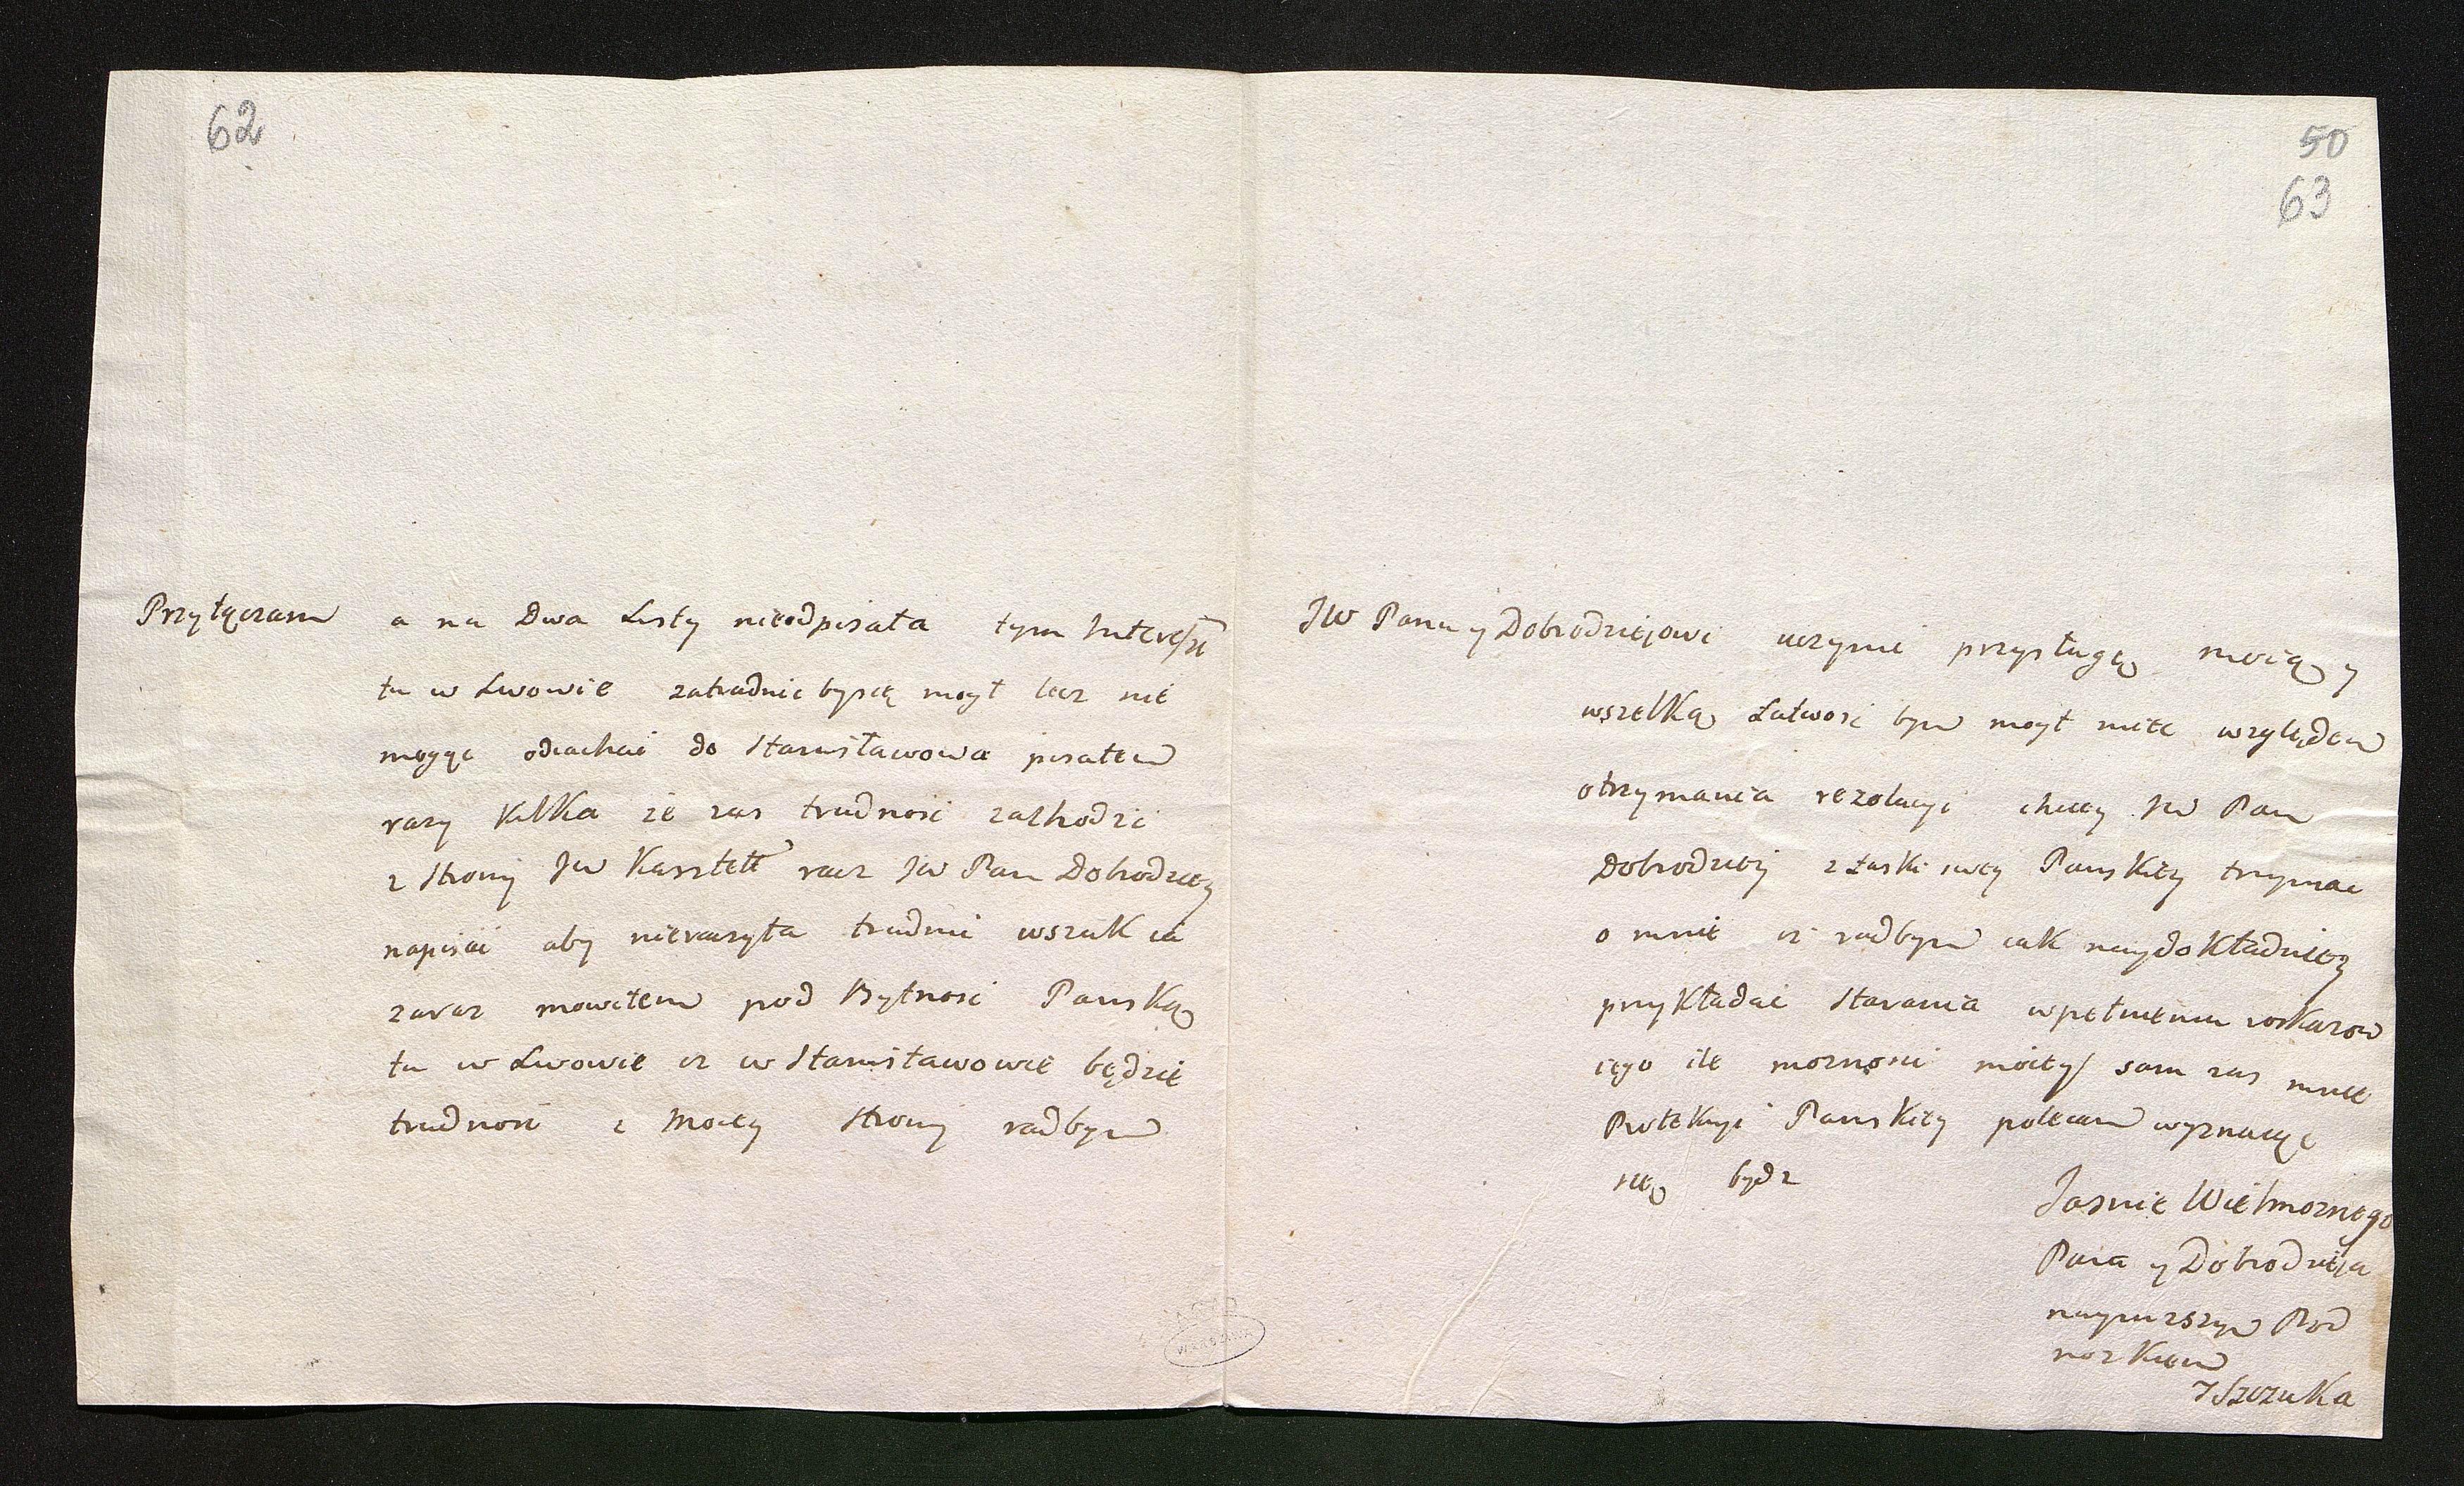 62
Przyłączam a na Dwa Listy nieodpisała tym Interessie
tu w Lwowie zatrudnic bysię mogł lecz nie
mogąc odiachać do Stanisławowa pisałem
razy kilka że zas trudność zachodzi
z strony JW Kasztell racz JW Pan Dobrodziey
napisać aby nieraczyła trudnić wszak ia
zaraz mowiłem pod Bytność Panską
tu w Lwowie iż w Stanisławowie będzie
trudność z Moiey strony radbym
50
63
JW Panu y Dobrodziejowi uczynić przysługę moią y
wszelką Łatwość bym mogł mieć względem
otrzymania rezolucyi chciey JW Pan
Dobrodziey z Łaski swey Panskiey trzymać
o mnie iż radbym iak naydokładniey
przykładać starania wpełnieniu roskazow
iego ile mozności moiey sam zas mnie
Protekcyi Panskiey polecam wyznaiąc
się bydz
Jasnie Wielmoznego
Pana y Dobrodzieja
nayniższym Pod
nożkiem
JSzczuka
WARSZAWA